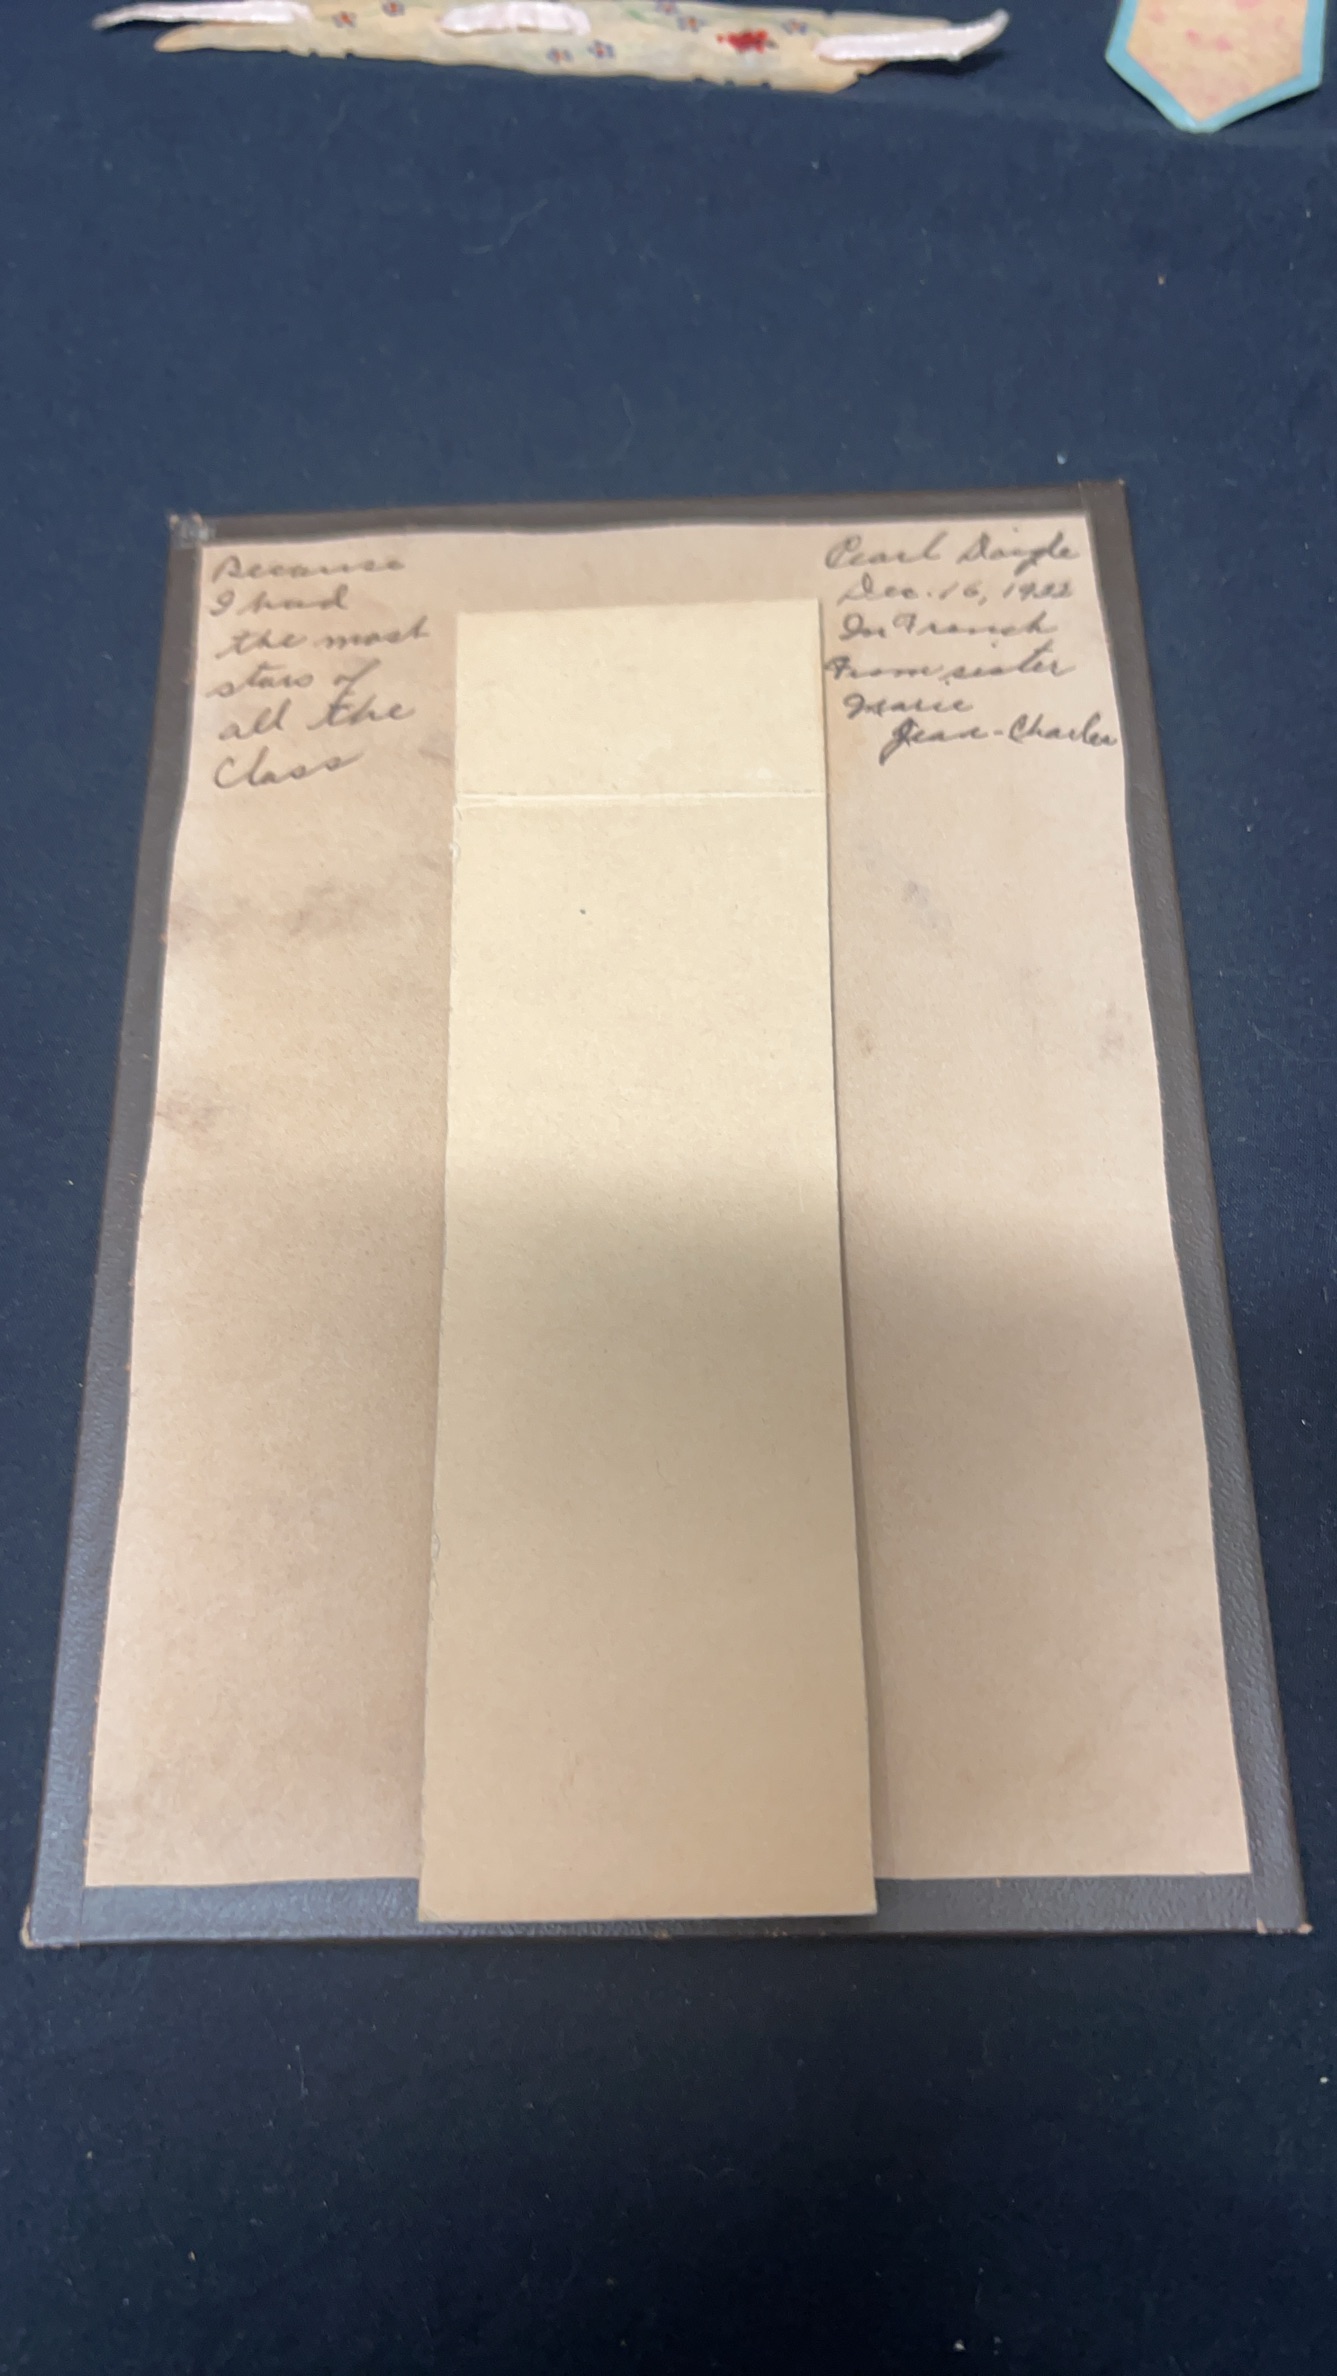 Because
I had
the most
stars of
all the
Class
Pearl Daigle
Dec. 16, 1932
In French
From sister
Marie
Jean-Charles